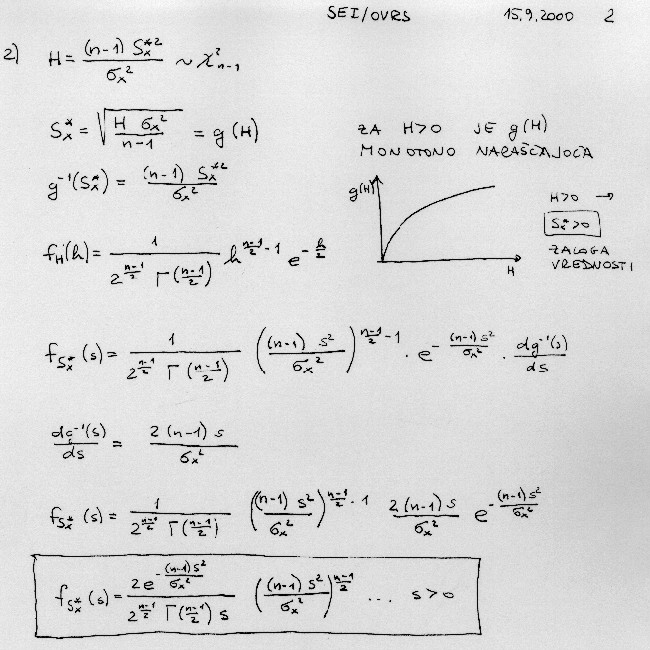 SEI/OVRS 15.9.2000 2
2) H = \frac{(n-1) S_x^{*2}}{σ_x^2} ~ χ^2_{n-1}
S_x^* = \sqrt{\frac{H σ_x^2}{n-1}} = g(H)
ZA H>0 JE g(H)
MONOTONO NARAŠČAJOČA
g^{-1}(S_x^*) = \frac{(n-1) S_x^{*2}}{σ_x^2}
g(H)
H
H>0 →
S_x^*>0
ZALOGA
VREDNOSTI
f_H(h) = \frac{1}{2^{\frac{n-1}{2}} Γ(\frac{n-1}{2})} h^{\frac{n-1}{2}-1} e^{-\frac{h}{2}}
f_{S_x^*}(s) = \frac{1}{2^{\frac{n-1}{2}} Γ(\frac{n-1}{2})} (\frac{(n-1) s^2}{σ_x^2})^{\frac{n-1}{2}-1} · e^{-\frac{(n-1)s^2}{σ_x^2}} · \frac{dg^{-1}(s)}{ds}
\frac{dg^{-1}(s)}{ds} = \frac{2(n-1)s}{σ_x^2}
f_{S_x^*}(s) = \frac{1}{2^{\frac{n-1}{2}} Γ(\frac{n-1}{2})} (\frac{(n-1) s^2}{σ_x^2})^{\frac{n-1}{2}-1} \frac{2(n-1)s}{σ_x^2} e^{-\frac{(n-1)s^2}{σ_x^2}}
f_{S_x^*}(s) = \frac{2e^{-\frac{(n-1)s^2}{σ_x^2}}}{2^{\frac{n-1}{2}} Γ(\frac{n-1}{2}) s} (\frac{(n-1) s^2}{σ_x^2})^{\frac{n-1}{2}} ... s>0